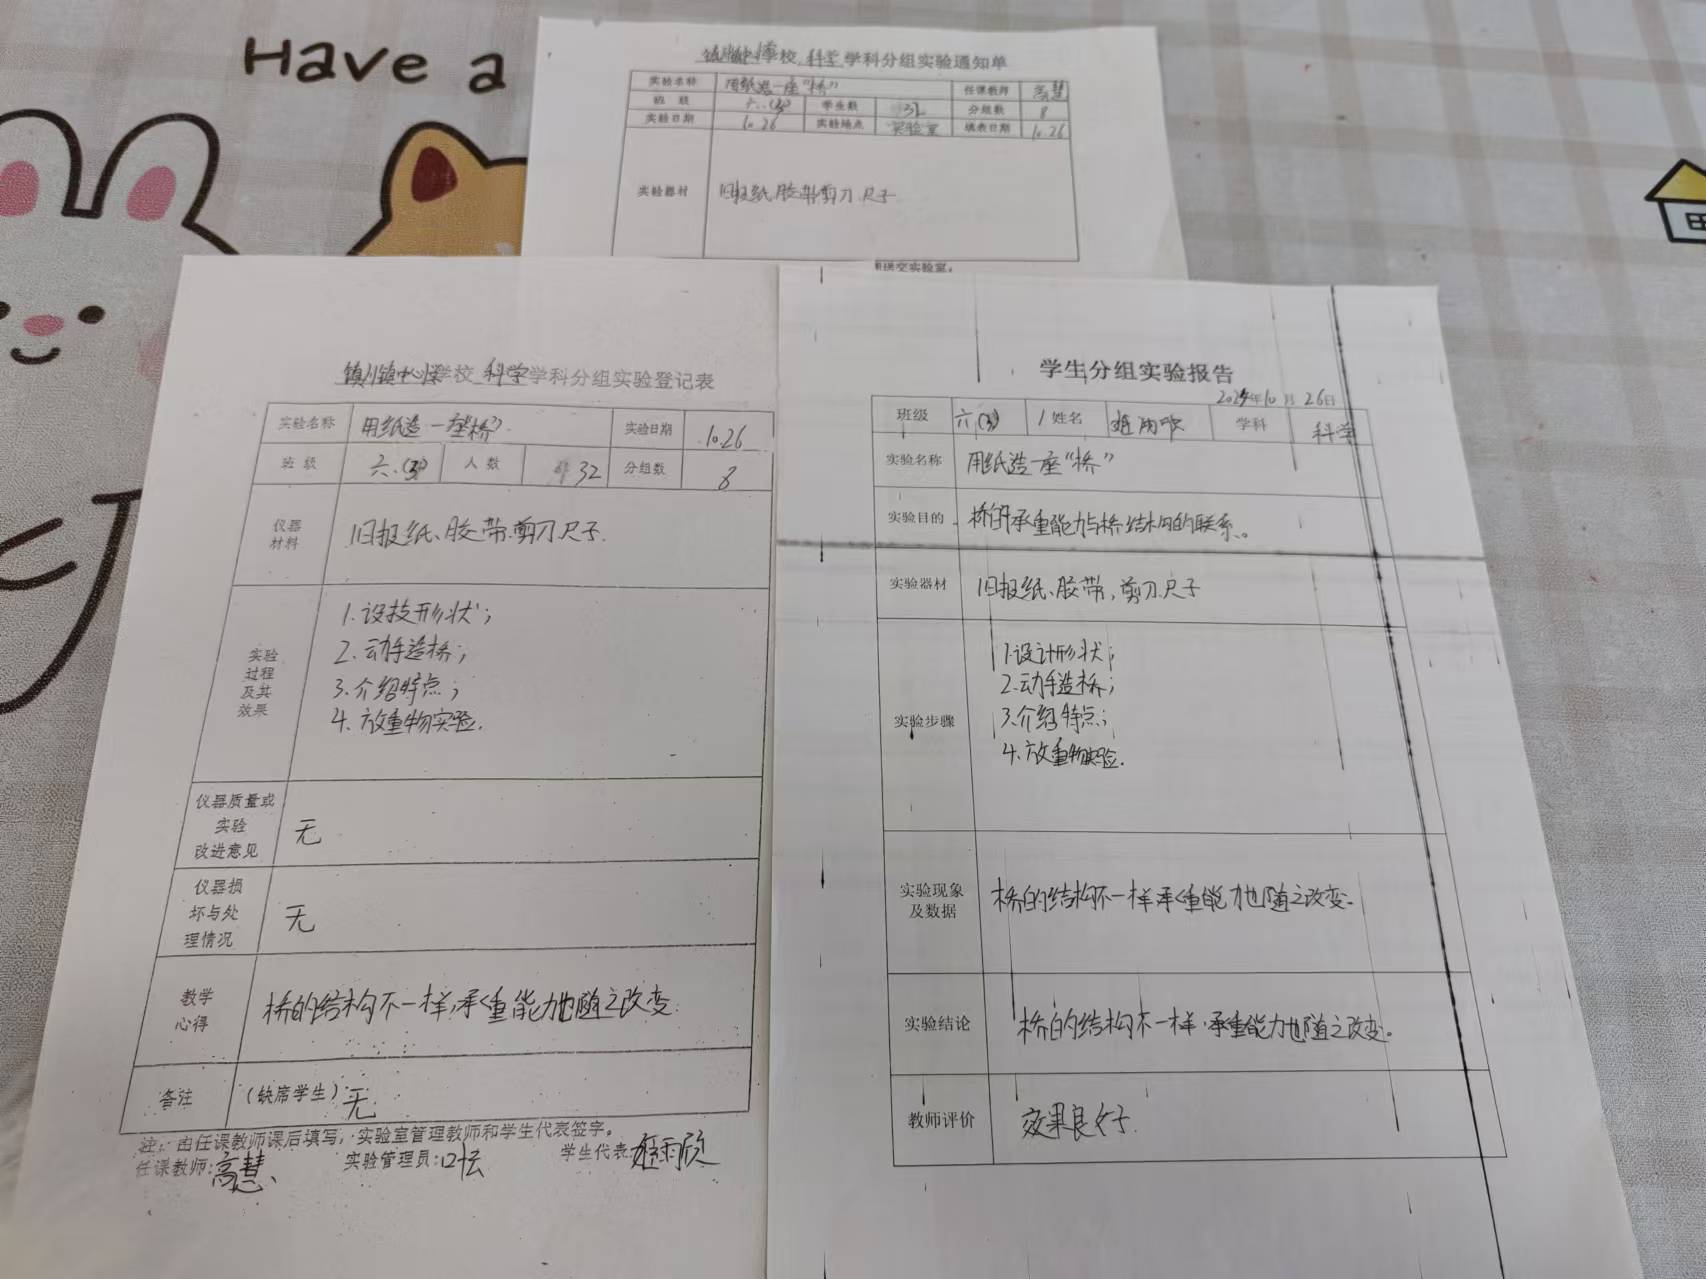 Have a
镇川镇中心小学校 科学 学科分组实验通知单
实验名称 用纸造一座“桥” 任课教师 高慧
班 级 六.(3) 学生数 32 分组数 8
实验日期 10.26 实验地点 实验室 填表日期 10.26
实验器材 旧报纸、胶带、剪刀、尺子
交实验室。
镇川镇中心小学校 科学 学科分组实验登记表
实验名称 用纸造一座“桥” 实验日期 10.26
班 级 六.(3) 人 数 32 分组数 8
仪器材料 旧报纸、胶带、剪刀、尺子.
实验过程及其效果
1.设技形状;
2.动手造桥;
3.介绍特点;
4.放重物实验.
仪器质量或实验改进意见 无
仪器损坏与处理情况 无
教学心得 桥的结构不一样,承重能力也随之改变.
备注 (缺席学生) 无.
注:由任课教师课后填写,实验室管理教师和学生代表签字。
任课教师:高慧、 实验管理员: 学生代表:姬雨欣
学生分组实验报告
2024年10月26日
班级 六.(3) 姓名 姬雨欣 学科 科学
实验名称 用纸造一座“桥”
实验目的 桥的承重能力与桥结构的联系。
实验器材 旧报纸、胶带,剪刀.尺子
实验步骤
1.设计形状;
2.动手造桥;
3.介绍特点;
4.放重物实验.
实验现象及数据 桥的结构不一样承重能力也随之改变.
实验结论 桥的结构不一样,承重能力也随之改变。
教师评价 效果良好.